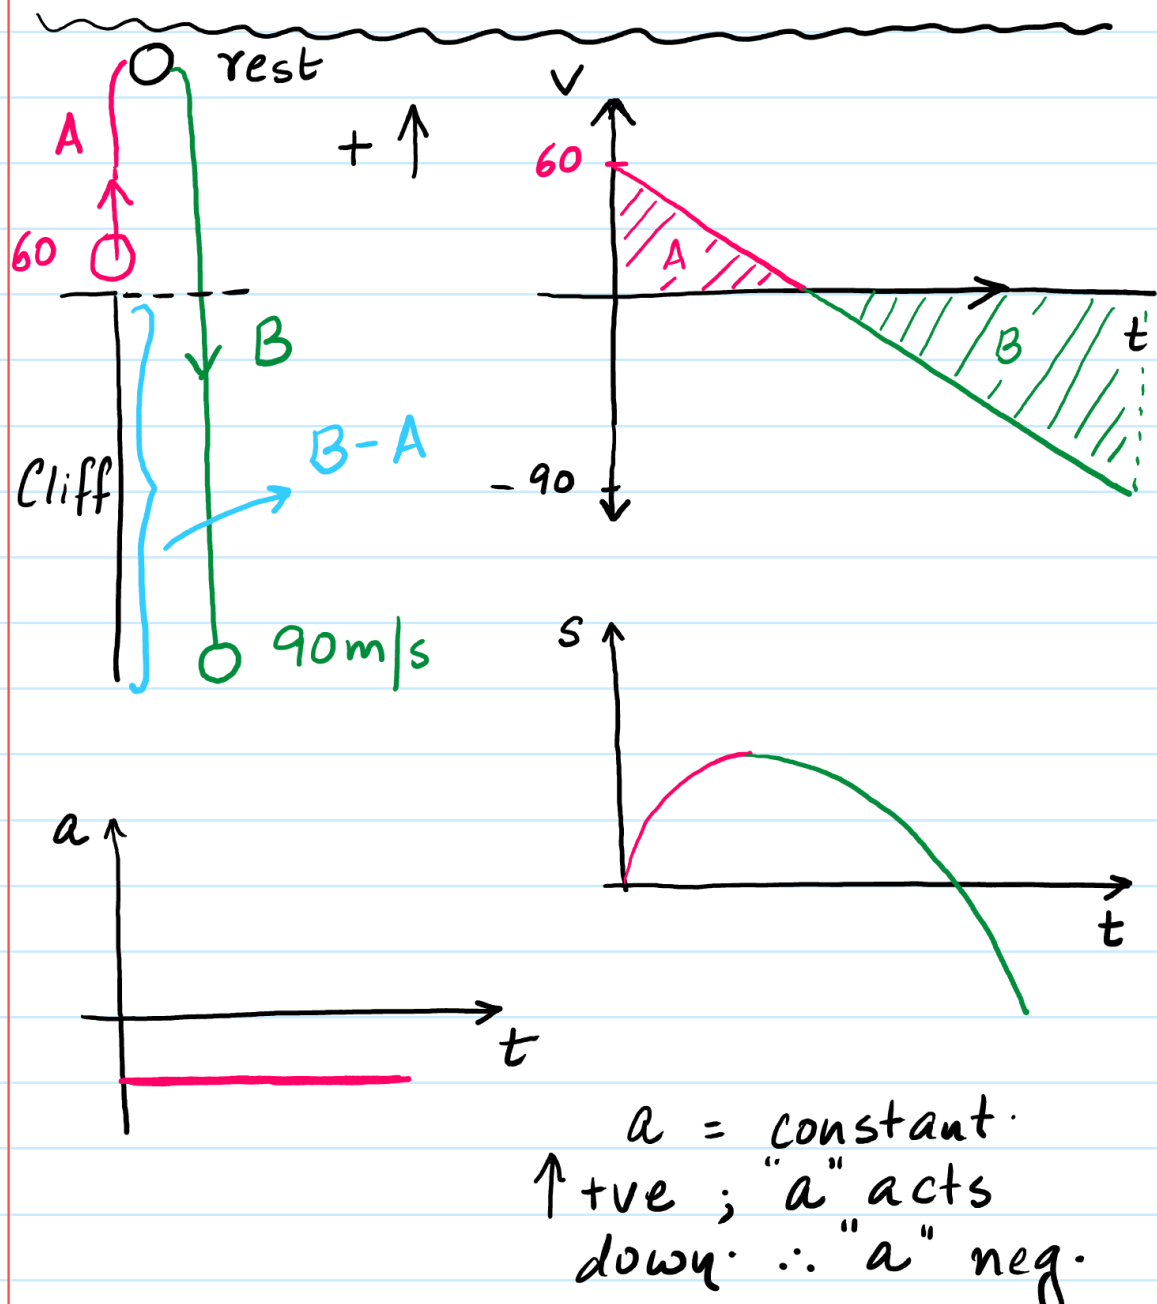 rest
A
+
60
B
B-A
Cliff
90m/s
V
60
A
B
t
- 90
s
t
a
t
a = constant.
↑ +ve ; "a" acts
down. ∴ "a" neg.